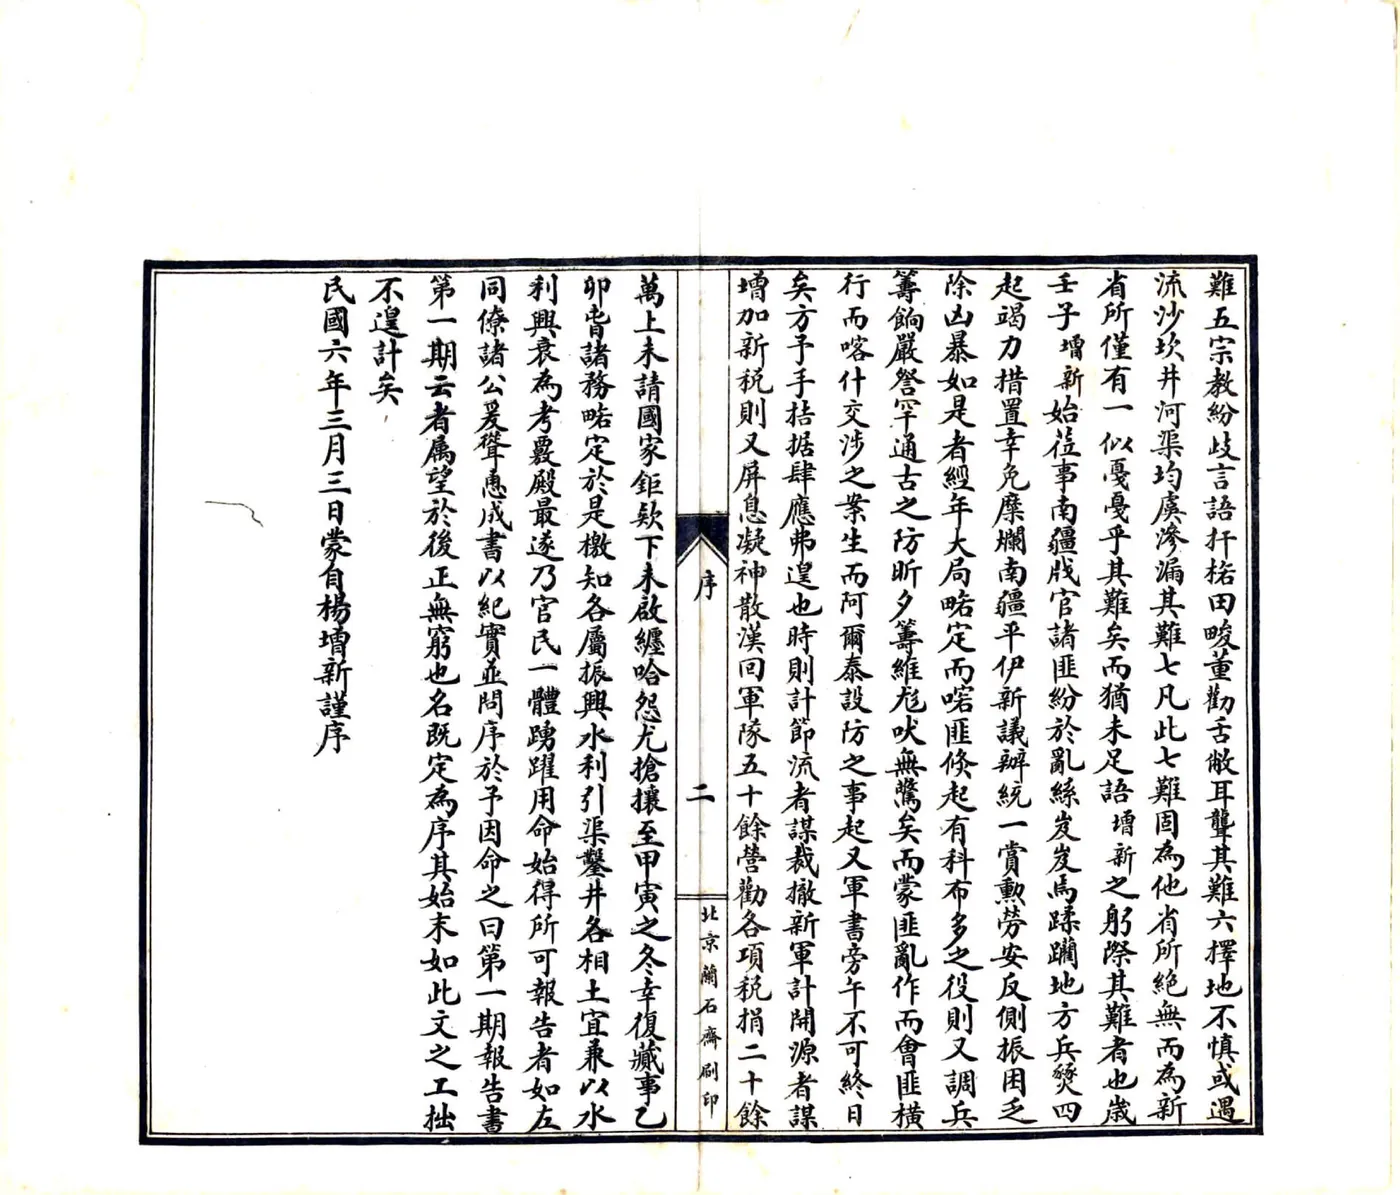 難五宗教紛歧言語扞格田畯董勸舌敝耳聾其難六擇地不慎或遇
流沙坎井河渠均虞滲漏其難七凡此七難固為他省所絕無而為新
省所僅有一似戞戞乎其難矣而猶未足語增新之躬際其難者也歲
壬子增新始蒞事南疆戕官諸匪紛於亂絲岌岌馬蹂躪地方兵燹四
起竭力措置幸免糜爛南疆平伊新議辦統一賞勳勞安反側振困乏
除凶暴如是者經年大局略定而喀匪倐起有科布多之役則又調兵
籌餉嚴詧罕通古之防昕夕籌維尨吠無驚矣而蒙匪亂作而會匪橫
行而喀什交涉之案生而阿爾泰設防之事起又軍書旁午不可終日
矣方予手拮据肆應弗遑也時則計節流者謀裁撤新軍計開源者謀
增加新稅則又屏息凝神散漢回軍隊五十餘營勸各項稅捐二十餘
序
二
北京蘭石齋刷印
萬上未請國家鉅欵下未啟纏哈怨尤搶攘至甲寅之冬幸復蕆事乙
卯嵵諸務略定於是檄知各屬振興水利引渠鑿井各相土宜兼以水
利興衰為考覈殿最遂乃官民一體踴躍用命始得所可報告者如左
同僚諸公爰聳慂成書以紀實並問序於予因命之曰第一期報告書
第一期云者属望於後正無窮也名既定為序其始末如此文之工拙
不遑計矣
民國六年三月三日蒙自楊增新謹序